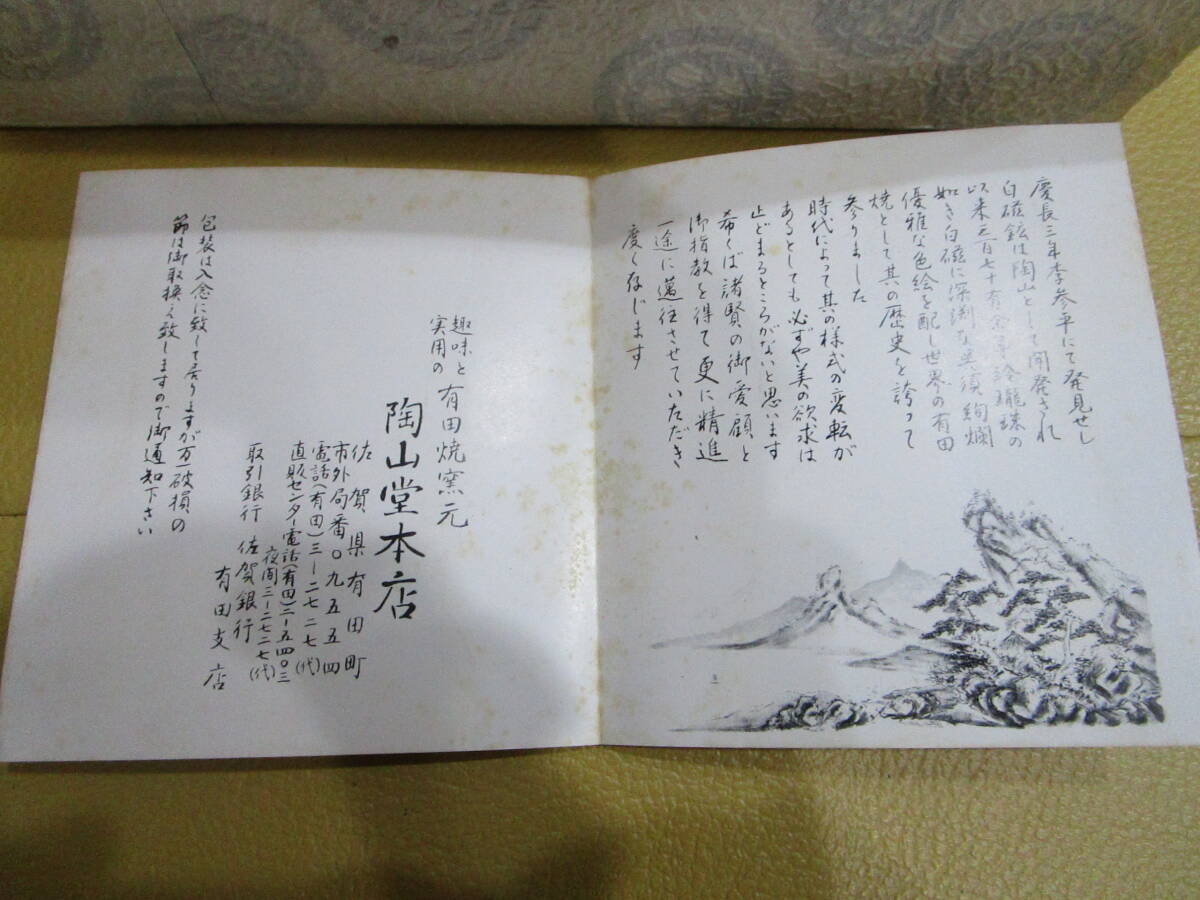 慶長三年李参平にて発見せし
白磁鉱は陶山として開発され
以来三百七十有余年玲瓏珠の
如き白磁に深渕な呉須絢爛
優雅な色絵を配し世界の有田
焼として其の歴史を誇って
参りました
時代によって其の様式の変転が
あるとしても必ずや美の欲求は
止どまるところがないと思います
希くば諸賢の御愛顧と
御指教を得て更に精進
一途に邁往させていただき
度く存じます
趣味と
実用の
有田焼窯元
陶山堂本店
佐賀県有田町
市外局番〇九五五四
電話(有田)三ー二七二七(代)
直販センター電話(有田)三ー五四〇三
夜間三ー二七二七(代)
取引銀行 佐賀銀行
有田支店
包装は入念に致して居りますが万一破損の
節は御取換へ致しますので御通知下さい